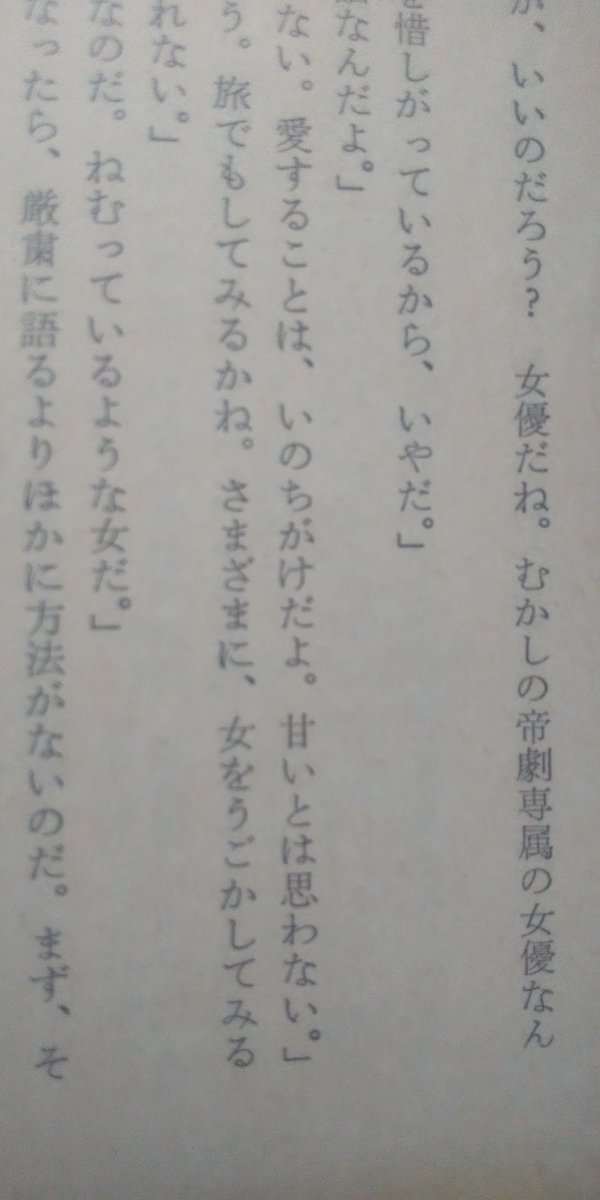 が、いいのだろう?　女優だね。むかしの帝劇専属の女優なん
を惜しがっているから、いやだ。」
なんだよ。」
ない。愛することは、いのちがけだよ。甘いとは思わない。」
う。旅でもしてみるかね。さまざまに、女をうごかしてみる
れない。」
なのだ。ねむっているような女だ。」
なったら、厳粛に語るよりほかに方法がないのだ。まず、そ